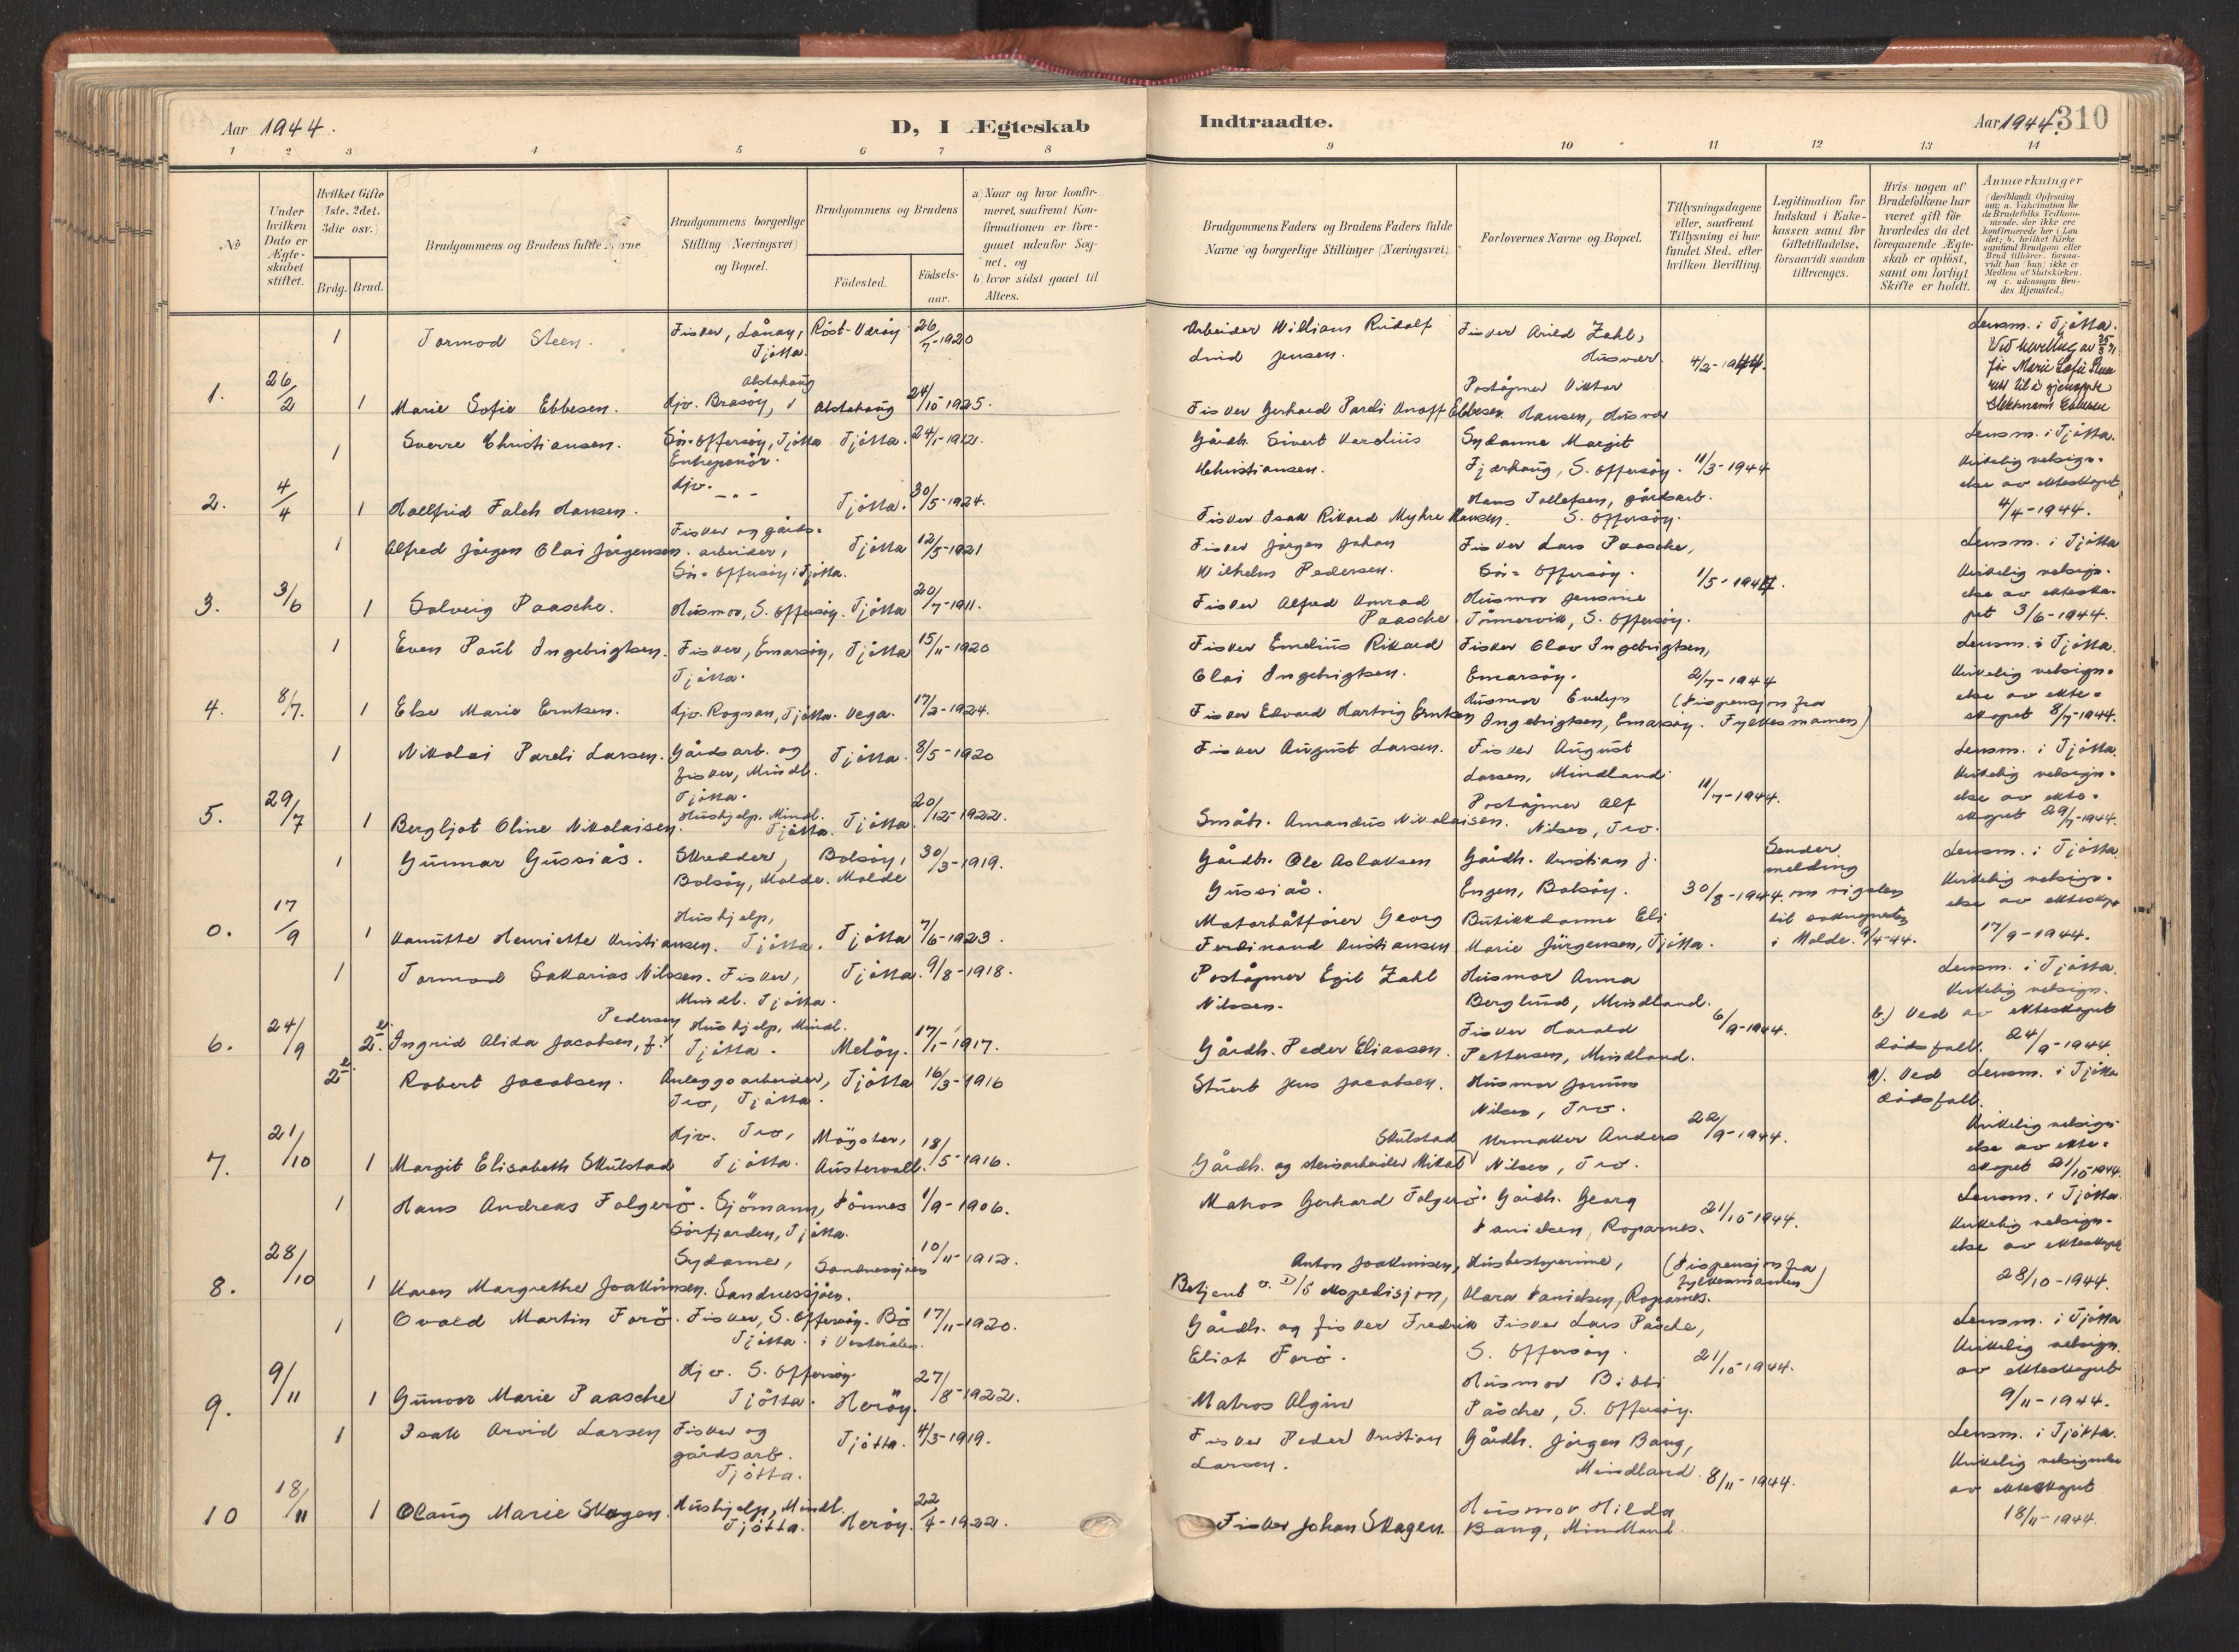 Aar 1944.
D, I Ægteskab
Indtraadte.
Aar 1944. 310
1 2 3 4 5 6 7 8
9 10 11 12 13 14
No
Under hvilken Dato er Ægteskabet stiftet.
Hvilket Gifte (1ste, 2det, 3die osv.)
Brdg. Brud.
Brudgommens og Brudens fulde Navne
Brudgommens borgerlige Stilling (Næringsvei) og Bopæl.
Brudgommens og Brudens
Födested.
Födselsaar.
a) Naar og hvor konfirmeret, saafremt Konfirmationen er foregaaet udenfor Sognet, og
b) hvor sidst gaaet til Alters.
Brudgommens Faders og Brudens Faders fulde Navne og borgerlige Stillinger (Næringsvei)
Forlovernes Navne og Bopæl.
Tillysningsdagene eller, saafremt Tillysning ei har fundet Sted, efter hvilken Bevilling.
Legitimation for Indskud i Enkekassen samt for Giftetilladelse, forsaavidt saadan tiltrænges.
Hvis nogen af Brudefolkene har været gift för hvorledes da det foregaaende Ægteskab er oplöst, samt om lovligt Skifte er holdt.
Anmærkninger
(deriblandt Oplysning om: a. Vakcination for de Brudefolks Vedkommende, der ikke ere konfirmerede her i Landet; b. hvilket Kirkesamfund Brudgom eller Brud tilhörer, forsaavidt han (hun) ikke er Medlem af Statskirken, og c. udensogns Brudes Hjemsted.)
1 Tormod Steen. Fisker, Lånan, Tjötta. Röst-Væröy 26/7-1920
Arbeider William Rudolf Lind Jensen. Fisker Arild Zahl, Husvær. 4/2-1944. Lensm. i Tjötta.
1. 26/2 1 Marie Sofie Ebbesen. Hjv. Brasöy, Alstahaug Alstahaug 24/10-1925.
Fisker Gerhard Pareli Knoff Ebbesen Poståpner Viktor Hansen, Husvær
1 Sverre Christiansen. Sör-Offersöy, Tjötta Entrepenör. Tjötta. 24/1-1912.
Gårdb. Sivert Kardius Khristiansen. Sydame Margit Fjærhaug, S. Offersöy. 11/3-1944 Lensm. i Tjötta. Kirkelig velsignelse av ekteskapet 4/4-1944.
2. 4/4 1 Hallfrid Falch Hansen. Hjv. -"- Tjötta. 30/5-1924.
Fisker Isak Rikard Myhre Hansen. Hans Tollefsen, gårdsarb. S. Offersöy.
1 Alfred Jörgen Olai Jörgensen. Fisker og gårdsarbeider, Sör-Offersöy i Tjötta. Tjötta 12/5-1921
Fisker Jörgen Johan Wilhelm Pedersen. Fisker Lars Paasche, Sör-Offersöy. 1/5-1944. Lensm. i Tjötta Kirkelig velsignelse av ekteskapet 3/6-1944.
3. 3/6 1 Solveig Paasche. Husmor, S. Offersöy. Tjötta 20/7-1911.
Fisker Alfred Konrad Paasche. Husmor Jensine Tömmervik, S. Offersöy.
1 Even Paul Ingebrigtsen. Fisker, Emarsöy, Tjötta. Tjötta 15/11-1920
Fisker Emelius Rikard Olai Ingebrigtsen. Fisker Olav Ingebrigtsen, Emarsöy. 2/7-1944 Lensm. i Tjötta. Kirkelig velsignelse av ekteskapet 8/7-1944.
4. 8/7. 1 Else Marie Erntsen. Hjv. Rognan, Tjötta. Vega. 17/2-1924.
Fisker Edvard Hartvig Erntsen Husmor Evelyn Ingebrigtsen, Emarsöy. (Dispensjon fra Fylkesmannen)
1 Nikolai Pareli Larsen. Gårdsarb. og fisker, Mindl. Tjötta. Tjötta. 8/5-1920
Fisker August Larsen. Fisker August Larsen, Mindland 11/7-1944. Lensm. i Tjötta. Kirkelig velsignelse av ekteskapet 29/7-1944.
5. 29/7 1 Bergljot Oline Nikolaisen. Hushjelp. Mindl. Tjötta. Tjötta 20/12-1922.
Småbr. Amandus Nikolaisen. Poståpner Alf Nilsen, Tro.
1 Gunnar Gussiås. Skredder, Bolsöy, Molde. Bolsöy, Molde 30/3-1919.
Gårdb. Ole Aslaksen Gussiås. Gårdb. Kristian J. Engen, Bolsöy. 30/8-1944. Sender melding om vigselen til soknepresten i Molde. Lensm. i Tjötta. Kirkelig velsignelse av ekteskapet 17/9-1944.
0. 17/9 1 Kanutte Henriette Kristiansen. Hushjelp, Tjötta. Tjötta 7/6-1923.
Motorbåtförer Georg Ferdinand Kristiansen Butikkdame Eli Marie Jürgensen, Tjötta.
1 Tormod Sakarias Nilssen. Fisker, Mindl. Tjötta. Tjötta. 9/8-1918.
Poståpner Egil Zahl Nilssen. Husmor Anna Berglund, Mindland. 6/9-1944. Lensm. i Tjötta. Kirkelig velsign. av ekteskapet 24/9-1944.
6. 24/9 2. Ingrid Alida Jacobsen, f. Pedersen Hushjelp, Mindl. Tjötta. Melöy. 17/1-1917.
Gårdb. Peder Eliassen. Fisker Harald Pettersen, Mindland. b.) Ved dödsfall.
2 Robert Jacobsen. Anleggsarbeider, Tro, Tjötta. Tjötta 16/3-1916
Stuert Jens Jacobsen. Husmor Jorunn Nilsen, Tro. 22/9-1944. a). Ved dödsfall. Lensm. i Tjötta Kirkelig velsignelse av ekteskapet 21/10-1944.
7. 21/10 1 Margit Elisabeth Skulstad Hjv. Tro, Tjötta. Mögster, Austervoll. 18/5-1916.
Gårdb. og steinarbeider Mikal Skulstad Urmaker Anders Nilsen, Tro.
1 Hans Andreas Folgerö. Sjömann, Sörfjorden, Tjötta. Dönnes 1/9-1906.
Matros Gerhard Folgerö. Gårdb. Georg Danielsen, Roparnes. 21/10-1944. Lensm. i Tjötta. Kirkelig velsignelse av ekteskapet 28/10-1944.
8. 28/10 1 Karen Margrethe Joakimsen. Sydame, Sandnessjöen. Sandnessjöen 10/11-1912.
Anton Joakimsen, Betjent v. D/S ekspedisjon, Husbestyrerinne, Klara Danielsen, Roparnes. (Dispensjon fra fylkesmannen)
1 Ovald Martin Forö. Fisker, S. Offersöy. Tjötta. Bö i Vesterålen. 17/11-1920.
Gårdb. og fisker Fredrik Eliot Forö. Fisker Lars Påsche, S. Offersöy. 21/10-1944. Lensm. i Tjötta Kirkelig velsign. av ekteskapet 9/11-1944.
9. 9/11 1 Gunvor Marie Paasche Hjv. S. Offersöy. Tjötta. Heröy. 27/8-1922.
Matros Algine Husmor Bibbi Påsche, S. Offersöy.
1 Isak Arvid Larsen Fisker og gårdsarb. Tjötta. Tjötta. 4/3-1919.
Fisker Peder Kristian Larsen. Gårdb. Jörgen Bang, Mindland. 8/11-1944. Lensm. i Tjötta. Kirkelig velsignelse av ekteskapet 18/11-1944.
10 18/11 1 Olaug Marie Skagen. Hushjelp, Mindl. Tjötta. Heröy. 22/4-1922.
Fisker Johan Skagen. Husmor Hilda Bang, Mindland.